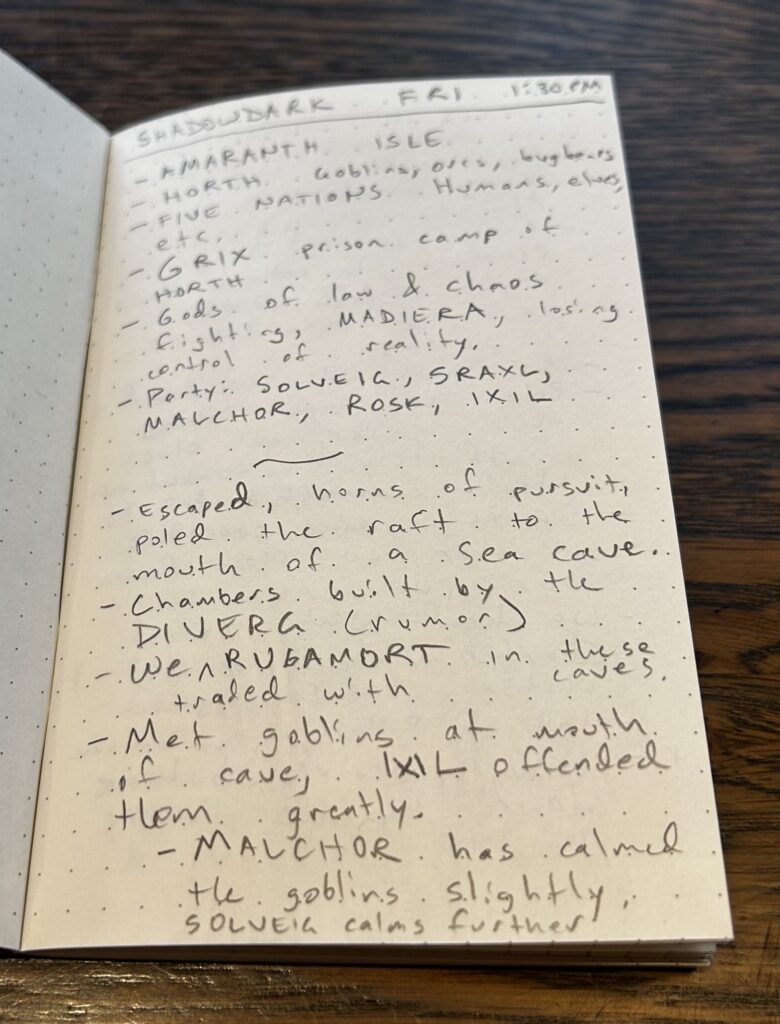 SHADOWDARK FRI 1:30 PM
- AMARANTH ISLE
- HORTH Goblins, orcs, bugbears
- FIVE NATIONS Humans, elves,
etc.
- GRIX prison camp of
HORTH
- Gods of law & chaos
fighting, MADIERA, losing
control of reality.
- Party: SOLVEIG, SRAXL,
MALCHOR, ROSK, IXIL
- Escaped, horns of pursuit,
poled the raft to the
mouth of a sea cave.
- Chambers built by the
DIVERG (rumor)
- We ^ RUGAMORT in these
traded with caves.
- Met goblins at mouth
of cave, IXIL offended
them greatly.
- MALCHOR has calmed
the goblins slightly,
SOLVEIG calms further